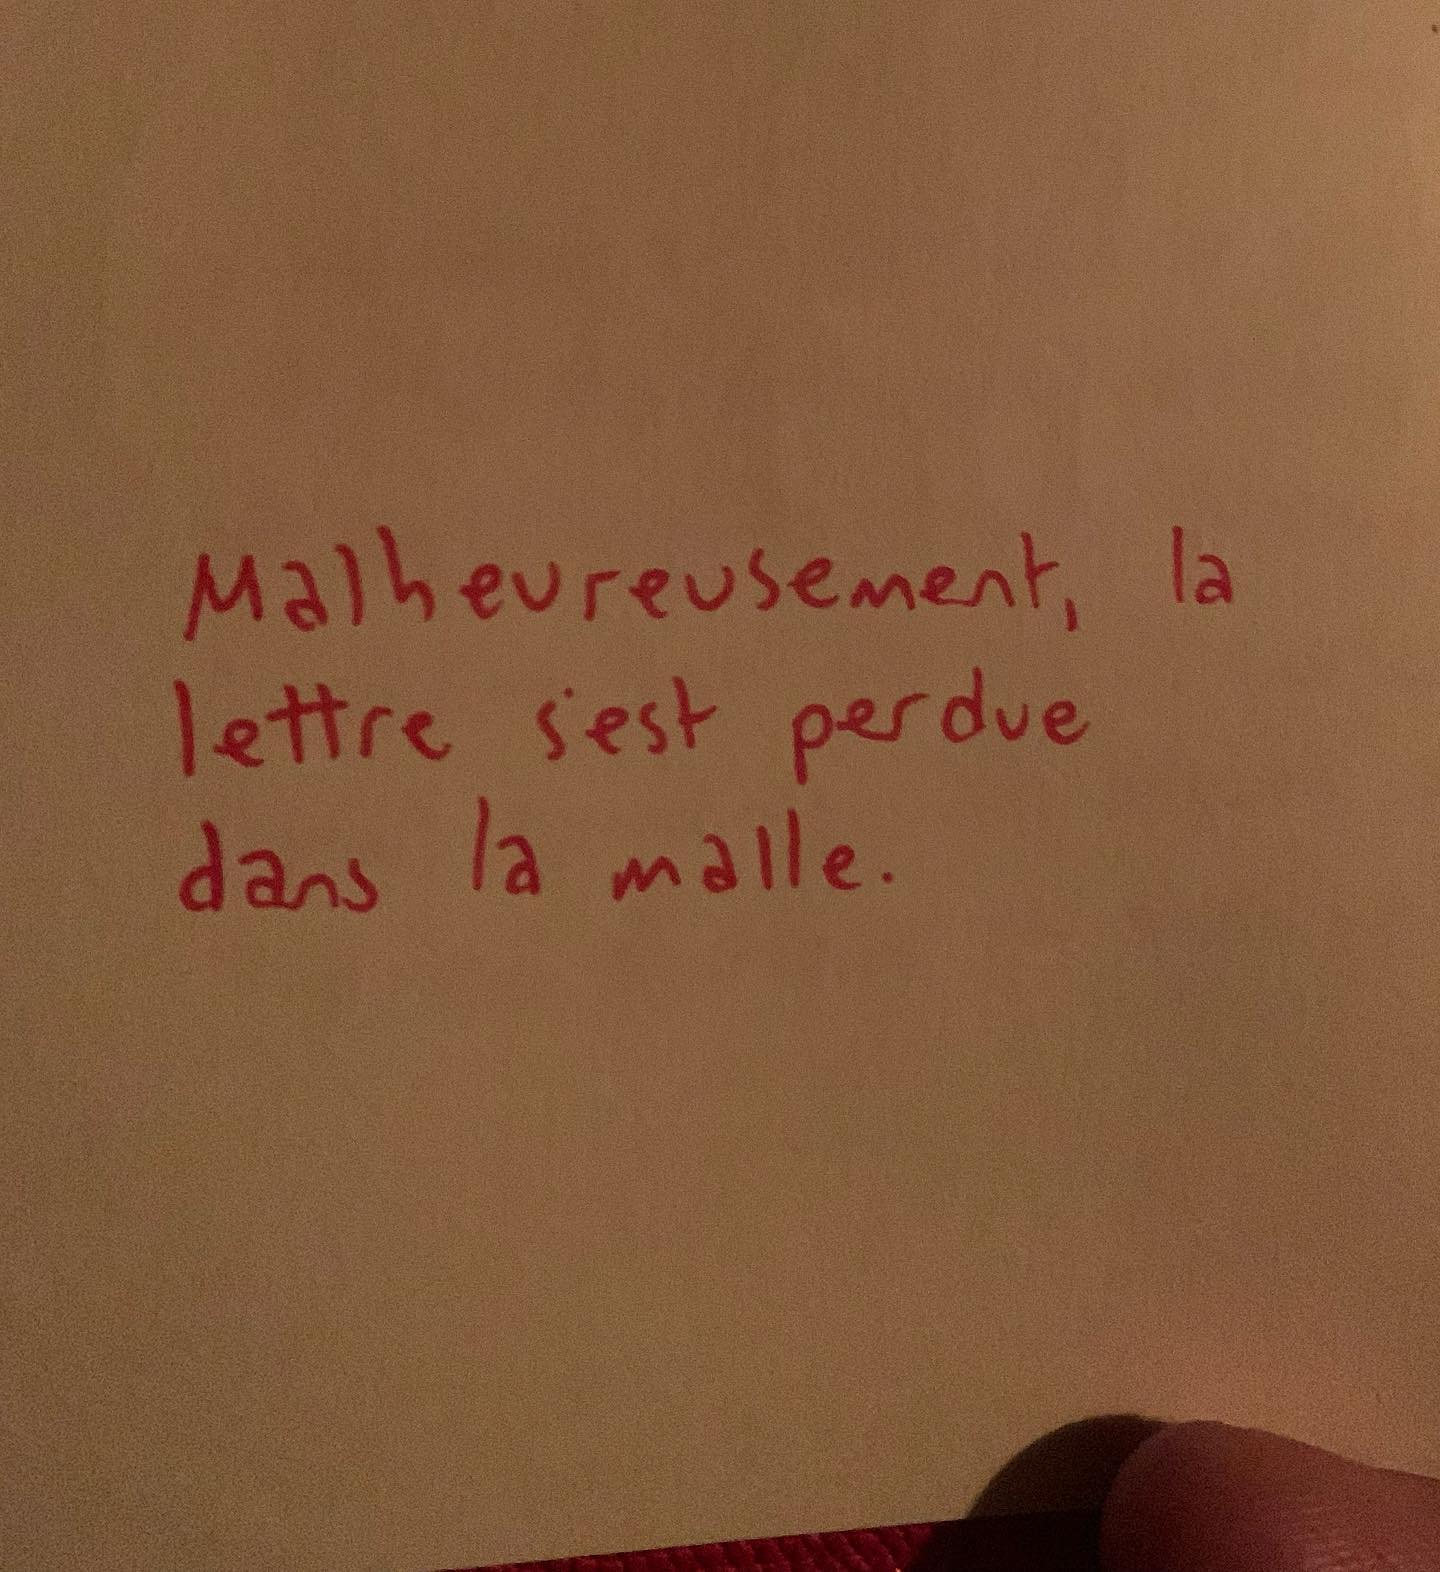 Malheureusement, la
lettre s'est perdue
dans la malle.